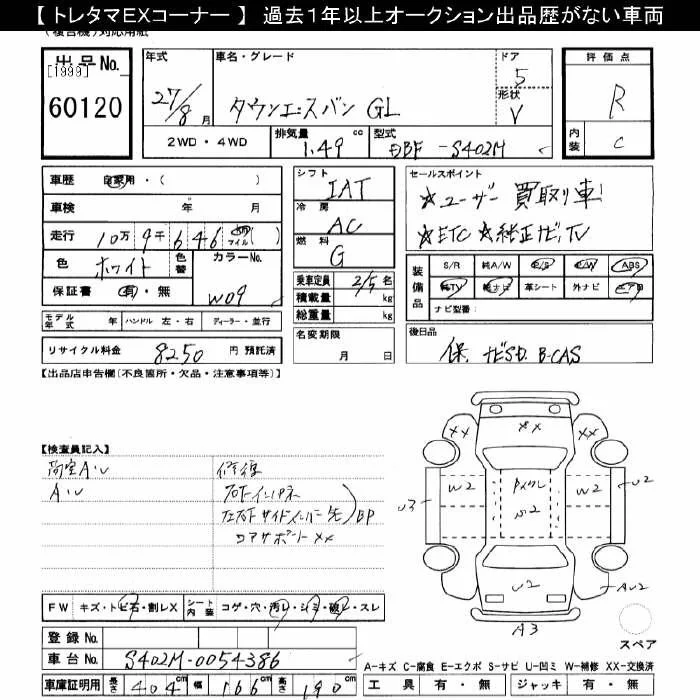 【 トレタマEXコーナー 】 過去１年以上オークション出品歴がない車両
（複合機）対応用紙
出品No.
[1999]
60120
年式
27/8 月
車名・グレード
タウンエースバン GL
ドア
5
形状
V
2WD・4WD
排気量
1.49 cc
型式
DBF -S402M
評価点
R
内装
C
車歴
自家用・( )
車検
年 月
走行
10万 9千 6 4 6 km マイル ( )
色
ホワイト
色替
カラーNo.
W09
保証書
有・無
モデル年式
年
ハンドル 左・右
ディーラー・並行
リサイクル料金
8250 円 預託済
シフト
IAT
冷房
AC
燃料
G
乗車定員
2/5 名
積載量
kg
総重量
kg
名変期限
月 日
セールスポイント
☆ユーザー買取り車!
☆ETC ☆純正ナビ,TV
装備品
S/R
純A/W
P/S
P/W
ABS
純TV
純ナビ
革シート
外ナビ
エアB
ナビ型番:
後日品
保、ナビSD、B-CAS
【出品店申告欄(不良箇所・欠品・注意事項等)】
【検査員記入】
荷室A・U
A・U
修復
コアサポートXX
BP
XX
XX
W2
W2
U2
U3
U2
U2
AU2
A3
FW
キズ・トビ石・割レX
シート内装
コゲ・穴・汚レ・シミ・破レ・スレ
登録 No.
車台 No.
S402M-0054386
車庫証明用
長さ 404 cm
幅 166 cm
高さ 190 cm
スペア
A-キズ C-腐食 E-エクボ S-サビ U-凹ミ W-補修 XX-交換済
工具
有・無
ジャッキ
有・無